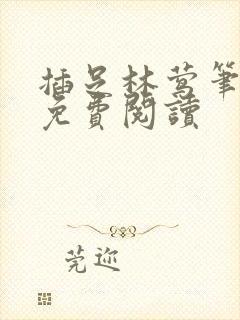 插足林莺筆
免費閱讀
莞迩